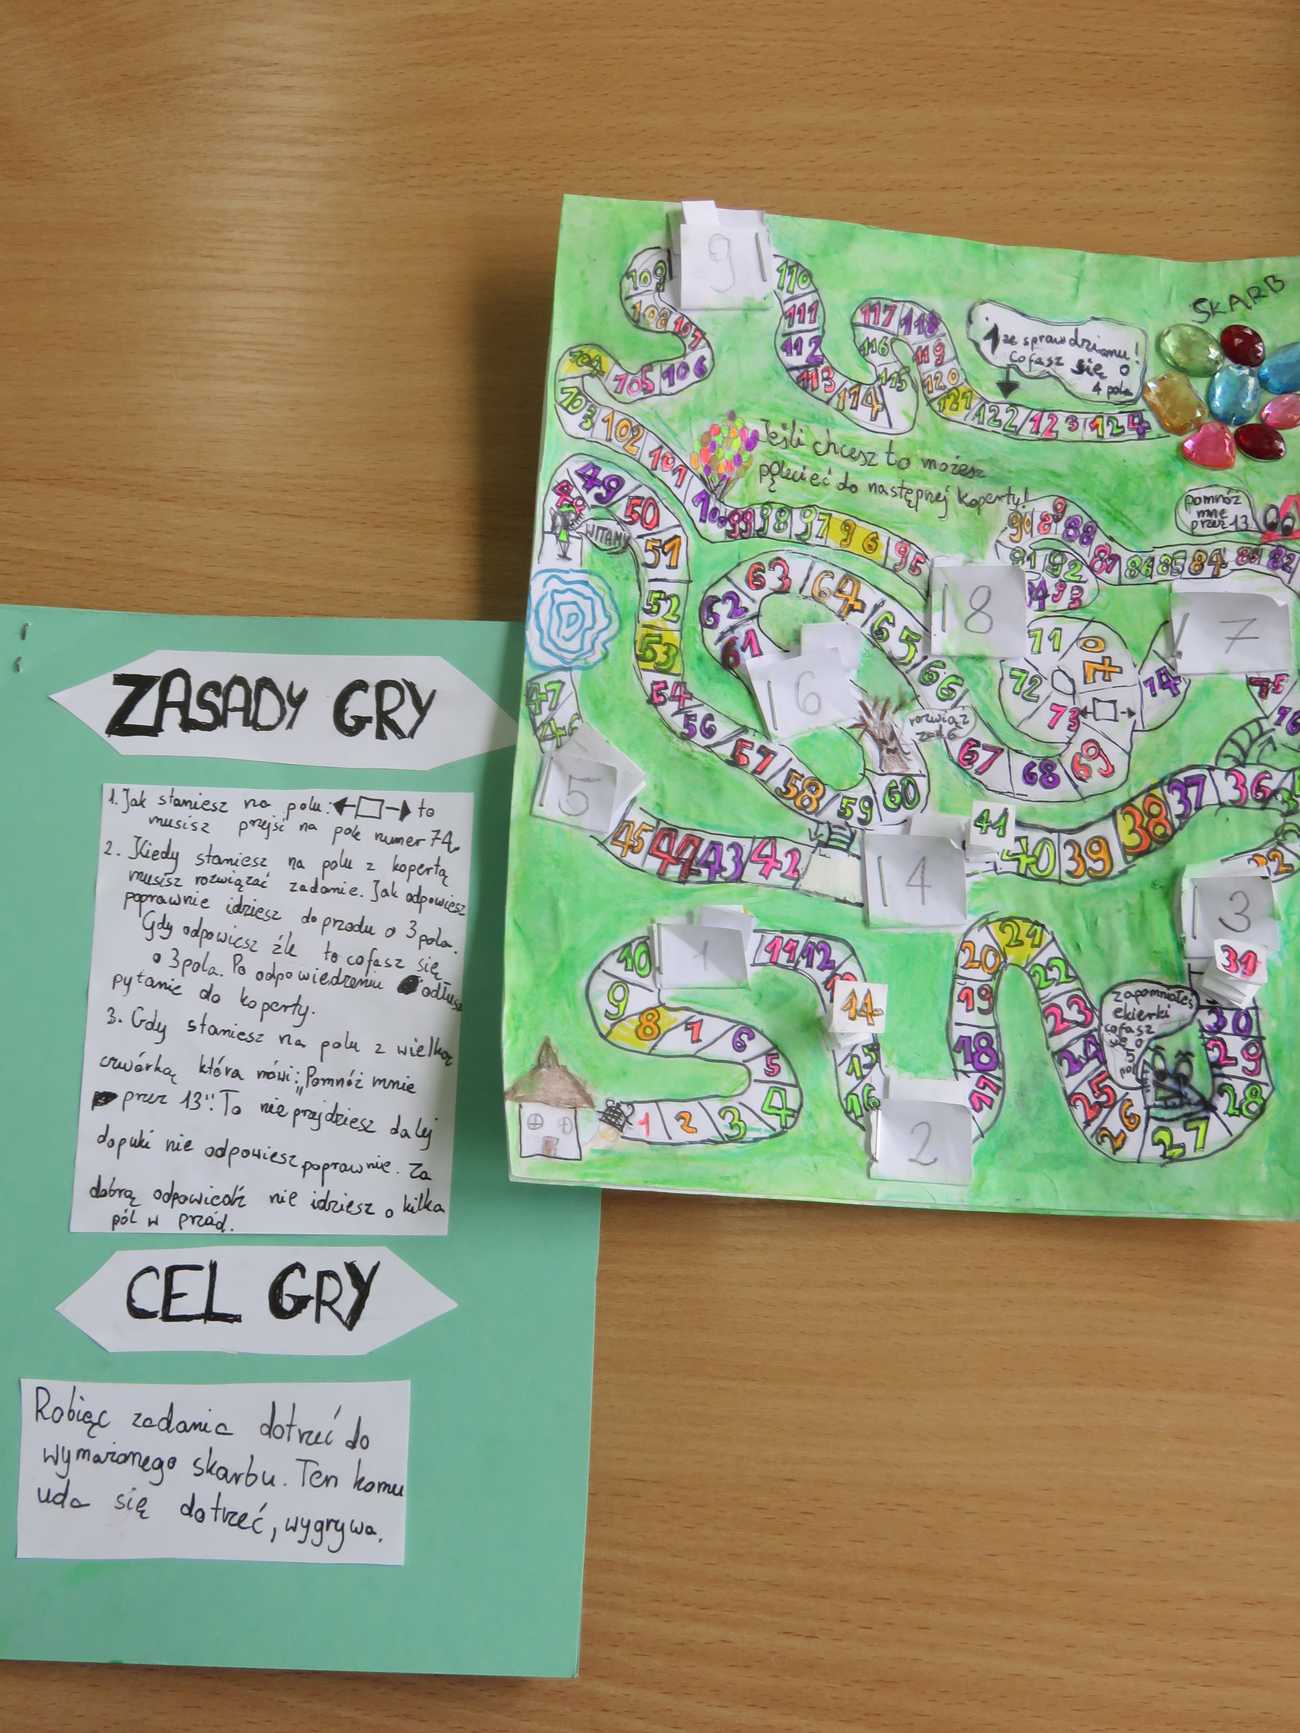 ZASADY GRY
1. Jak staniesz na polu: to
musisz prejść na pole numer 74.
2. Kiedy staniesz na polu z kopertą
musisz rozwiązać zadanie. Jak odpowiesz
poprawnie idziesz do przodu o 3 pola.
Gdy odpowiesz źle to cofasz się
o 3 pola. Po odpowiedzeniu odłusz
pytanie do koperty.
3. Gdy staniesz na polu z wielką
czwórką która mówi: „Pomnóż mnie
przez 13". To nie prejdziesz dalej
dopuki nie odpowiesz poprawnie. Za
dobrą odpowiedź nie idziesz o kilka
pól w przód.
CEL GRY
Robiąc zadania dotrzeć do
wymażonego skarbu. Ten komu
uda się dotrzeć, wygrywa.
SKARB
1 ze sprawdzianu!
cofasz się o
4 pola
Jeśli chcesz to możesz
polecieć do następnej koperty!
pomnóż
mnie
przez 13
WITAMY
rozwiąż
zad. 6
zapomniałeś
ekierki
cofasz
się o
5
pól
1 2 3 4
5 6 7 8
9 10
1
11 12
14
15
16
2
17
18
19
20 21 22
23
24
25
26 27 28
29
30
31
3
32
36
37 38 39 40
41
14
42 43 44 45
15
46
47
48 49 50
51
52
53
54
56 57 58 59 60
16
61
62
63 64 65 66
67 68 69
70
71
72
73
74
17
75
76
82 83 84 85 86 87
88
89
90
91 92
93
94
18
95 96 97 98 99 100
101 102 103
104 105 106
107 108
109
19
110
111
112
113 114 115
116
117 118
119
120
121 122 123 124